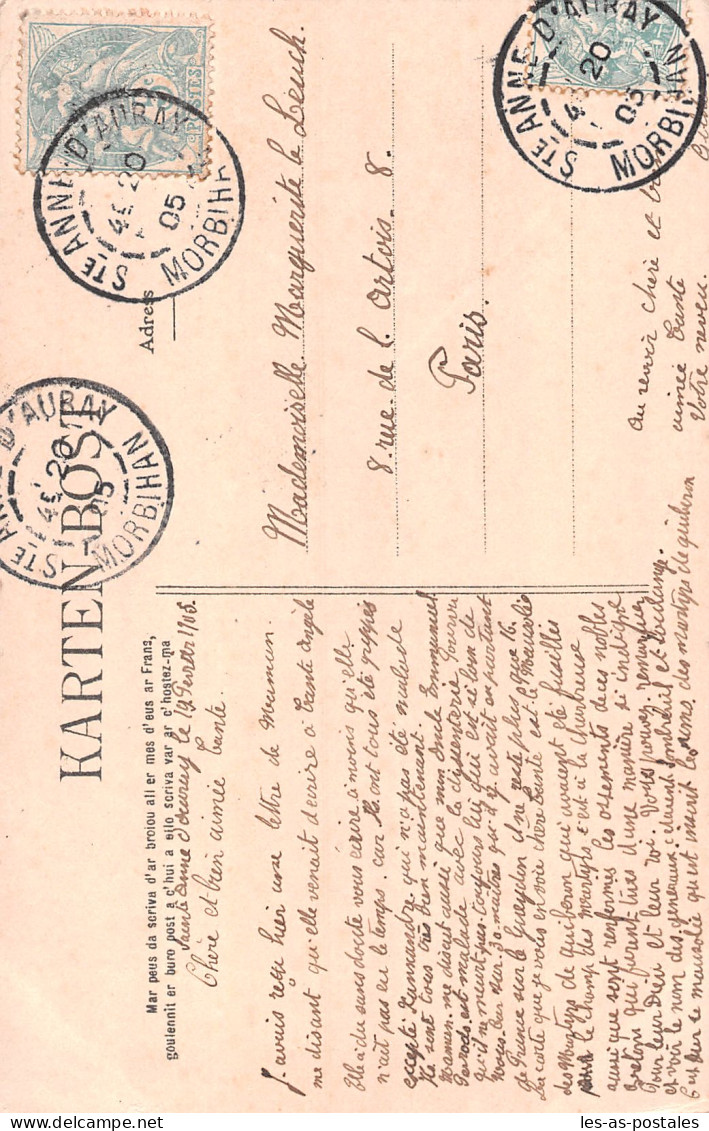 KARTEN-BOST
Mar peus da scriva d'ar broiou all er mes d'eus ar Frans,
goulennit er buro post a c'hui a ello scriva var ar c'hostez-ma
Adress
STE ANNE-D'AURAY
20
05
MORBIHAN
STE ANNE-D'AURAY
20
05
MORBIHAN
STE ANNE-D'AURAY
20
05
MORBIHAN
POSTES
Mademoiselle Marguerite le
8 rue de l'Artois. 8.
Paris.
Sainte Anne d'Auray le 19
Chère et bien aimée Tante.
J'avais reçu hier une lettre de Maman.
me disant qu'elle venait d'ecrire à Tante Angèle
Elle a du sans doute vous ecrire à moins qu'elle
n'ait pas eu le temps. car ils ont tous été grippés
excepté qui n'a pas été malade
Ils sont tous très bien maintenant.
Maman me disait aussi que mon Oncle Emmanuel
est malade avec la dysenterie pourvu
qu'il ne meurt pas. toujours lui qui est si loin de
nous. Sur 30 maitres qu'il y avait en partant
de France sur le il ne reste plus que 16.
La carte que je vous envoie chère Tante est le Mausolée
des Martyrs de quiberon qui avaient été fusillés
le Champ des martyrs c'est à la Chartreuse
aussi que sont renfermés les ossements de ces nobles
Bretons qui furent tués d'une manière si indigne
Pour leur Dieu et leur roi. Vous pouvez remarquer
et voir le nom des généraux c'étaient Sombreuil et Soulange.
C'est sur ce mausolée qu'est inscrit les noms des martyrs de quiberon
au revoir chère et
aimée Tante
Votre neveu.
les-as-postales